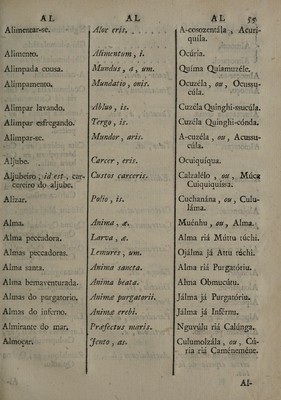 AL AL AL 55
Alimentar-se. Alor eris. A-cosozentála , Acuri-
quíla.
Alimento. Alimentum , i. Ocúria.
Alimpada cousa. Mundus , a , um. Químa Quiamuzéle.
Alimpamento. Mundatio , onis. Ocuzéla , ou , Ocussu-
cúla.
Alimpar lavando. Abluo , is. Cuzéla Quinghi-sucúla.
Alimpar esfregando. Tergo , is. Cuzéla Quinghi-cónda.
Alimpar-se. Mundor , aris. A-cuzéla , ou , Acussu-
cúla.
Aljube. Carcer , eris. Ocuiquíqua.
Aljubeiro , id est , car-
cereiro do aljube. Custos carceris. Calzalélo , ou , Múca
Cuiquiquíma.
Alizar. Polio , is. Cuchanána , ou , Culu-
láma.
Alma. Anima , æ. Muénhu , ou , Alma.
Alma peccadora. Larva , æ. Alma riá Múttu rúchi.
Almas peccadoras. Lemures , um. Ojálma já Attu rúchi.
Alma santa. Anima sancta. Alma riá Purgatóriu.
Alma bemaventurada. Anima beata. Alma Obmucúru.
Almas do purgatorio. Animæ purgatorii. Jálma já Purgatóriu.
Almas do inferno. Animæ erebi. Jálma já Inférnu.
Almirante do mar. Præfectus maris. Nguvúlu riá Calúnga.
Almoçar. Jento , as. Culumolzála , ou , Cú-
ria riá Caméneméne.
Al-